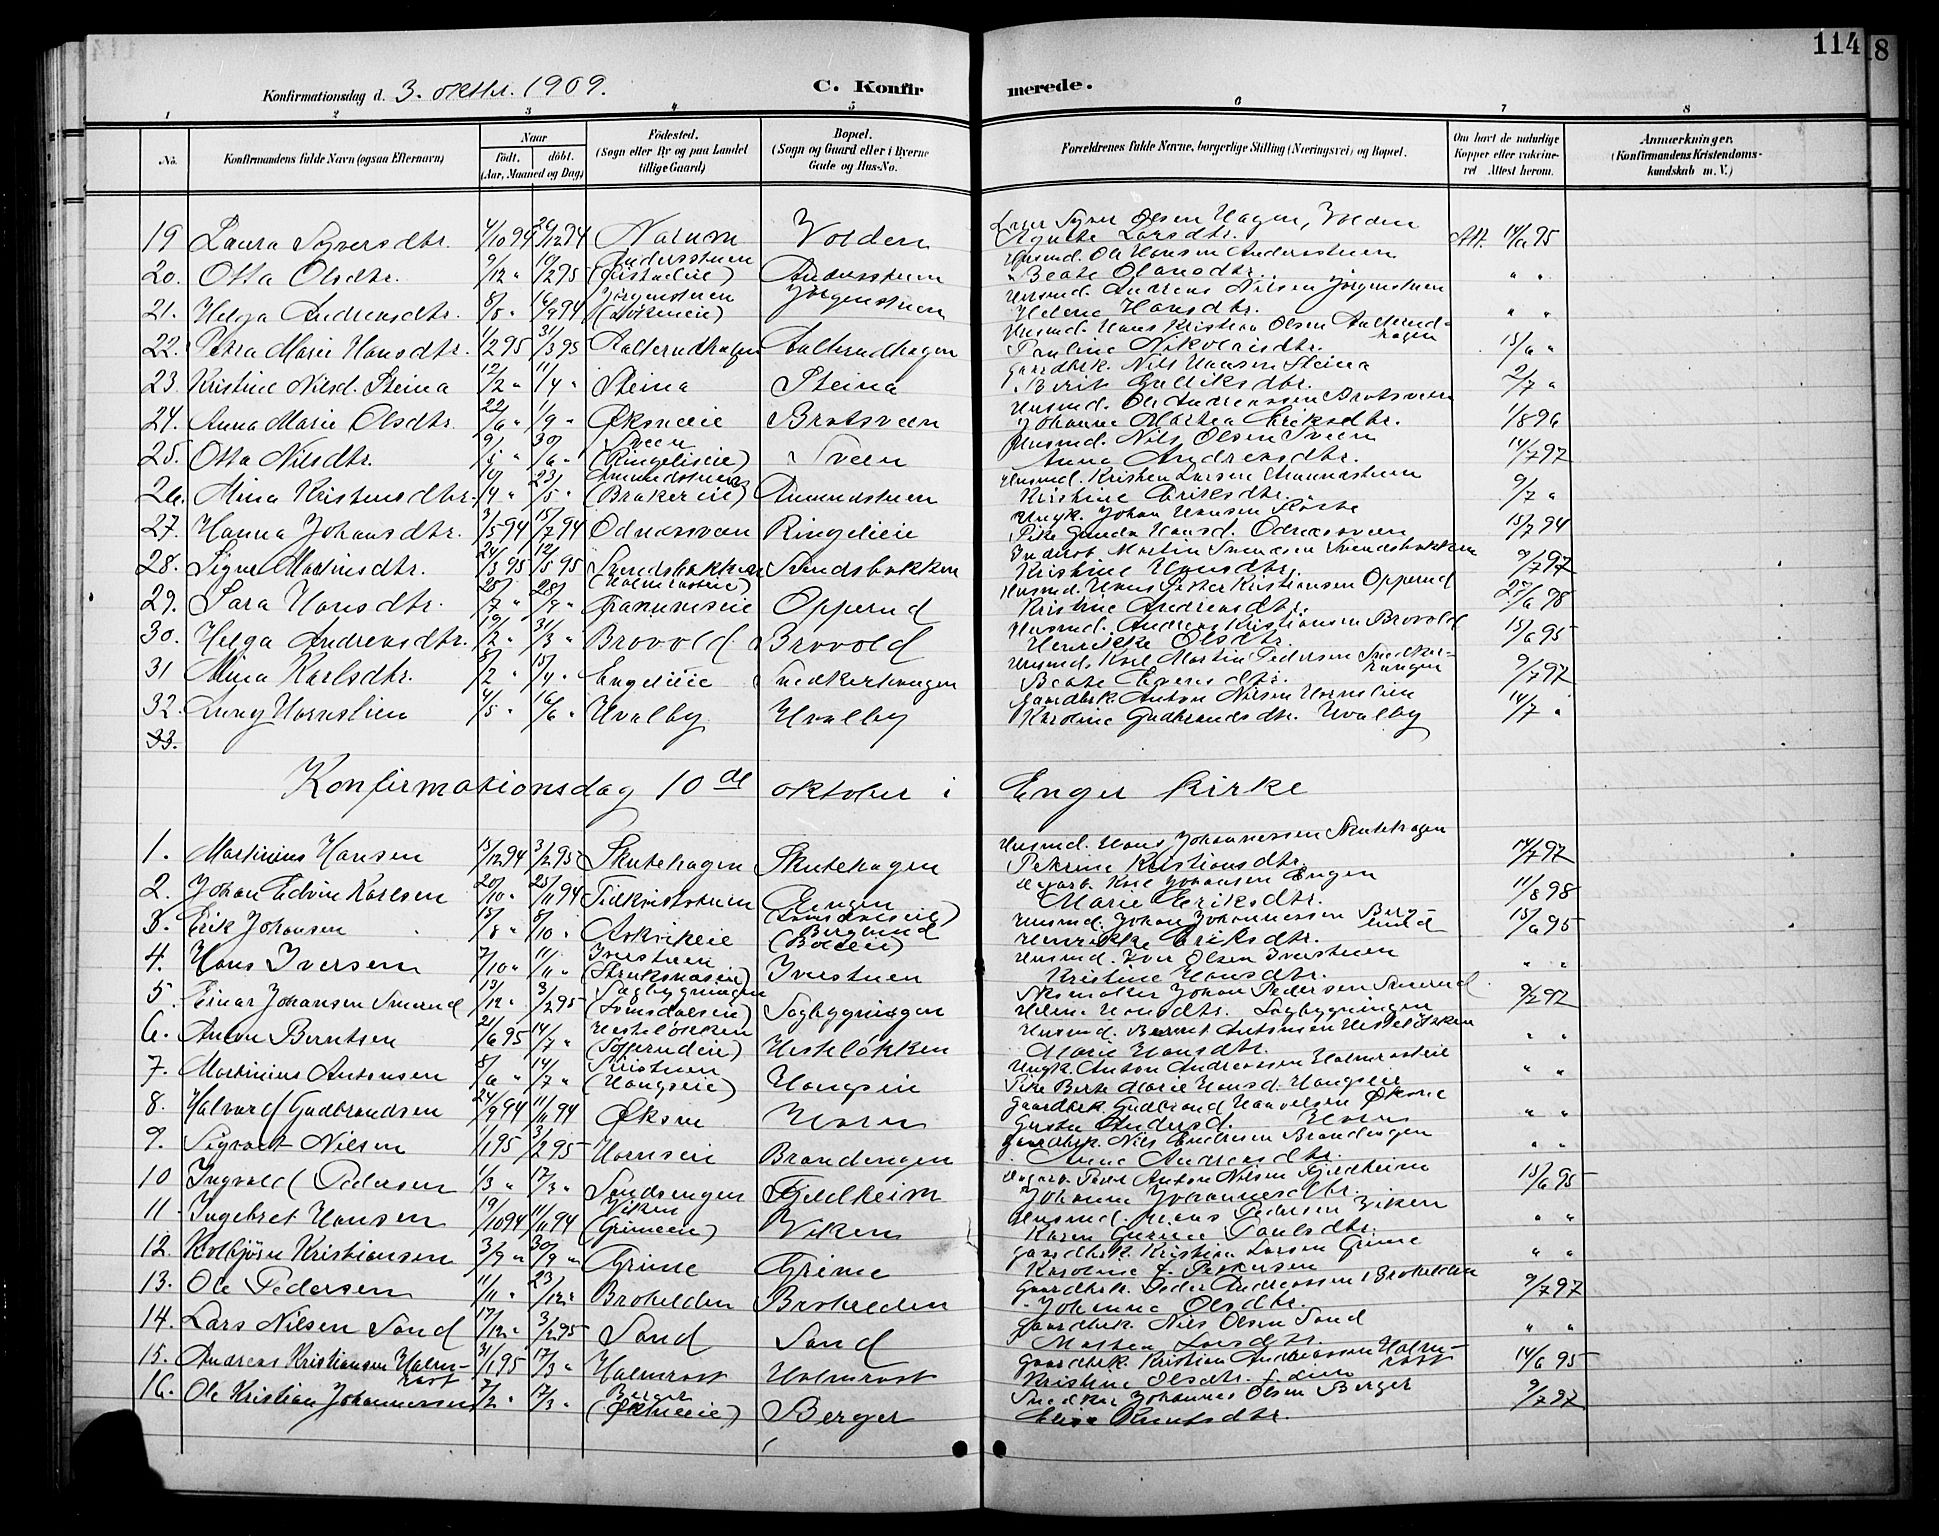 114
8
Konfirmationsdag d. 3. oktbr. 1909.
C. Konfirmerede.
1 2 3 4 5 6 7 8
No. Konfirmandens fulde Navn (ogsaa Efternavn) Naar födt. döbt. (Aar, Maaned og Dag) Födested. (Sogn eller By og paa Landet tillige Gaard) Bopæl. (Sogn og Gaard eller i Byerne Gade og Hus-No. Forældrenes fulde Navne, borgerlige Stilling (Næringsvei) og Bopæl. Om havt de naturlige Kopper eller vakcineret Attest herom. Anmærkninger. (Konfirmandens Kristendomskundskab m. V.)
19 Laura Syversdtr. 4/10 94 26/12 94 Narum Volden Syver Olsen Hagen, Volden Agnethe Larsdtr. Att. 14/6 95
20. Otta Olsdtr. 9/12 " 10/2 95 Andersstuen Andersstuen Husmd. Ole Hansen Andersstuen Beate Olausdtr. " "
21. Helga Andreasdtr. 8/8 " 16/9 94 Jörgenstuen Jörgenstuen Husmd. Andreas Nilsen Jörgenstuen Helene Hansdtr. " "
22. Petra Marie Hansdtr. 1/2 95 31/3 95 Aalterudhagen Aalterudhagen Husmd. Hans Kristian Olsen Aalterudhagen Pauline Nikolaisdtr. 15/6 "
23. Kristine Nilsd. Steina 12/2 " 11/4 " Steina Steina Gaardbrk. Nils Hansen Steina Berit Gulliksdtr. 2/7 "
24. Anna Marie Olsdtr. 22/6 " 1/9 " Øksneeie Brotsveen Husmd. Ole Andreassen Brotsveen Johanne Marthea Eriksdtr. 1/8 96
25. Otta Nilsdtr. 9/5 " 30/6 " Sveen (Ringelieie) Sveen Husmd. Nils Olsen Sveen Anna Andreasdtr. 14/7 97
26. Mina Kristensdtr. 19/4 " 23/5 " Amundstuen (Brakereie) Amundstuen Husmd. Kristen Larsen Amundstuen Kristine Eriksdtr. 9/7 "
27. Hanna Johansdtr. 3/5 94 15/7 94 Odnassveen Ringelieie Ungk. Johan Hansen Pike Gunda Hansd. Odnassveen 15/7 94
28. Signe Martinsdtr. 24/3 95 12/5 95 Svendsbakken (Halmrasteie) Svendsbakken Inderst Martin Svendsen Svendsbakken Kristine Hansdtr. 9/7 97
29. Sara Hansdtr. 25/7 " 28/9 " Granumseie Opperud Husmd. Hans Peter Kristiansen Opperud Kristine Andreasdtr. 27/6 98
30. Helga Andreasdtr. 19/2 " 31/3 " Brovold Brovold Husmd. Andreas Kristiansen Brovold Henrikke Olsdtr. 15/6 95
31 Mina Karlsdtr. 8/2 " 15/4 " Engelieie Snedkerhaugen Husmd. Karl Martin Pedersen Snedkerhaugen Beate Evensdtr. 9/7 97
32. Luny Hornslien 4/5 " 16/6 " Hvalby Hvalby Gaardbrk. Anton Nilsen Hornslien Karoline Gudbrandsdtr. Hvalby 14/7 "
33.
Konfirmationsdag 10de oktober i Enger Kirke
1. Martinius Hansen 15/12 94 3/2 95 Skutehagen Skutehagen Husmd. Hans Johannessen Skutehagen Petrine Kristiansdtr. 14/7 97
2. Johan Edvin Karlsen 20/10 " 25/11 94 Tidkriststuen Eengen Dagarb. Karl Johansen Engen Marie Eriksdtr. 11/8 98
3. Erik Johansen 15/8 " 8/10 " Askvikeie Berglund Husmd. Johan Johannessen Berglund Henrikke Eriksdtr. 15/6 95
4. Hans Iversen 7/10 " 11/11 " Iverstuen Iverstuen Husmd. Iver Olsen Iverstuen Kristine Hansdtr. " "
5. Einar Johansen Smerud 13/12 " 3/2 95 Sagbygningen (Lomsdalseie) Sagbygningen Johan Pedersen Smerud Helene Hansdtr. Sagbygningen 9/7 97
6. Anton Berntsen 21/6 95 14/7 " Hesteløkken Hesteløkken Husmd. Bernt Antonsen Hesteløkken Marie Hansdtr. " "
7. Martinius Antonsen 8/6 " 14/7 " (Haugseie) Haugseie Ungk. Anton Andreassen Halmrasteie Pike Berte Marie Hansd. Haugseie " "
8. Halvard Gudbrandsen 24/9 94 11/11 94 Øksne Horn Gaardbrk. Gudbrand Halvorsen Øksne Gusta Andersd. Horn " "
9. Sigvart Nilsen 1/1 95 3/2 95 Hornseie Brandengen Gaardbrk. Nils Endresen Brandengen Anne Andreasdtr. " "
10 Ingvald Pedersen 1/3 " 17/3 " Sandsengen Fjeldheim Dagarb. Peder Anton Nilsen Fjeldheim Johanne Johannesdtr. 15/6 95
11. Ingebret Hansen 19/10 94 11/11 94 Viken (Grimeeie) Viken Husmd. Hans Pedersen Viken Karen Gurine Paulsdtr. " "
12. Kolbjørn Kristiansen 3/9 " 30/9 " Grime Grime Gaardbrk. Kristian Larsen Grime Karoline f. Paulsen " "
13. Ole Pedersen 11/11 " 23/12 " Brohelden Brohelden Gaardbrk. Peder Andreassen Brohelden Johanne Olsdtr. 9/7 97
14. Lars Nilsen Sand 17/12 " 3/2 95 Sand Sand Gaardbrk. Nils Olsen Sand Mathea Larsdtr. " "
15. Andreas Kristiansen Halmrast 31/1 95 17/3 " Halmrast Halmrast Gaardbrk. Kristian Andreassen Halmrast Kristine Olsdtr. 14/6 95
16. Ole Kristian Johannessen 7/2 " 17/3 " Berger (Øksneeie) Berger Snedker Johannes Olsen Berger Elise Knutsdtr. 9/7 97